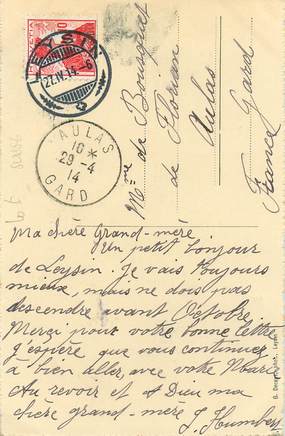 LEYSIN
27.IV.14.-6
HELVETIA
10
AULAS
10*
29-4
14
GARD
Mme de Bousquet
de Florian
Aulas
Gard
France
Ma chère Grand-mère
Un petit bonjour
de Leysin. Je vais toujours
mieux, mais ne dois pas
descendre avant Octobre.
Merci pour votre bonne lettre
j'espère que vous continuez
à bien aller, avec votre
Au revoir et à Dieu ma
chère grand-mère J. Humbert